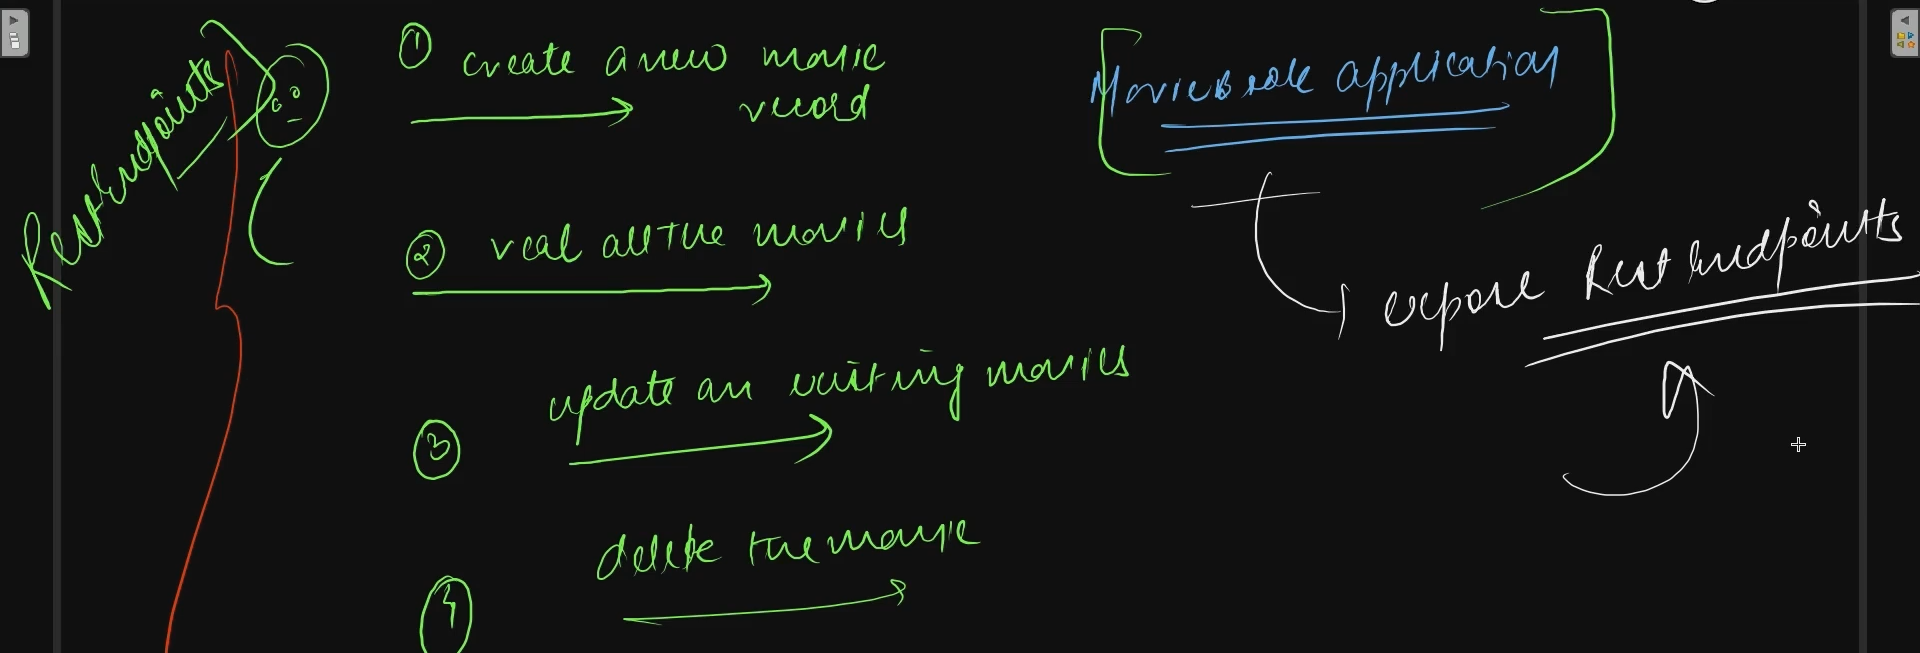 Rest Endpoints
① create a new movie
record
② read all the movies
③ update an existing movies
④ delete the movie
application
expose Rest Endpoints